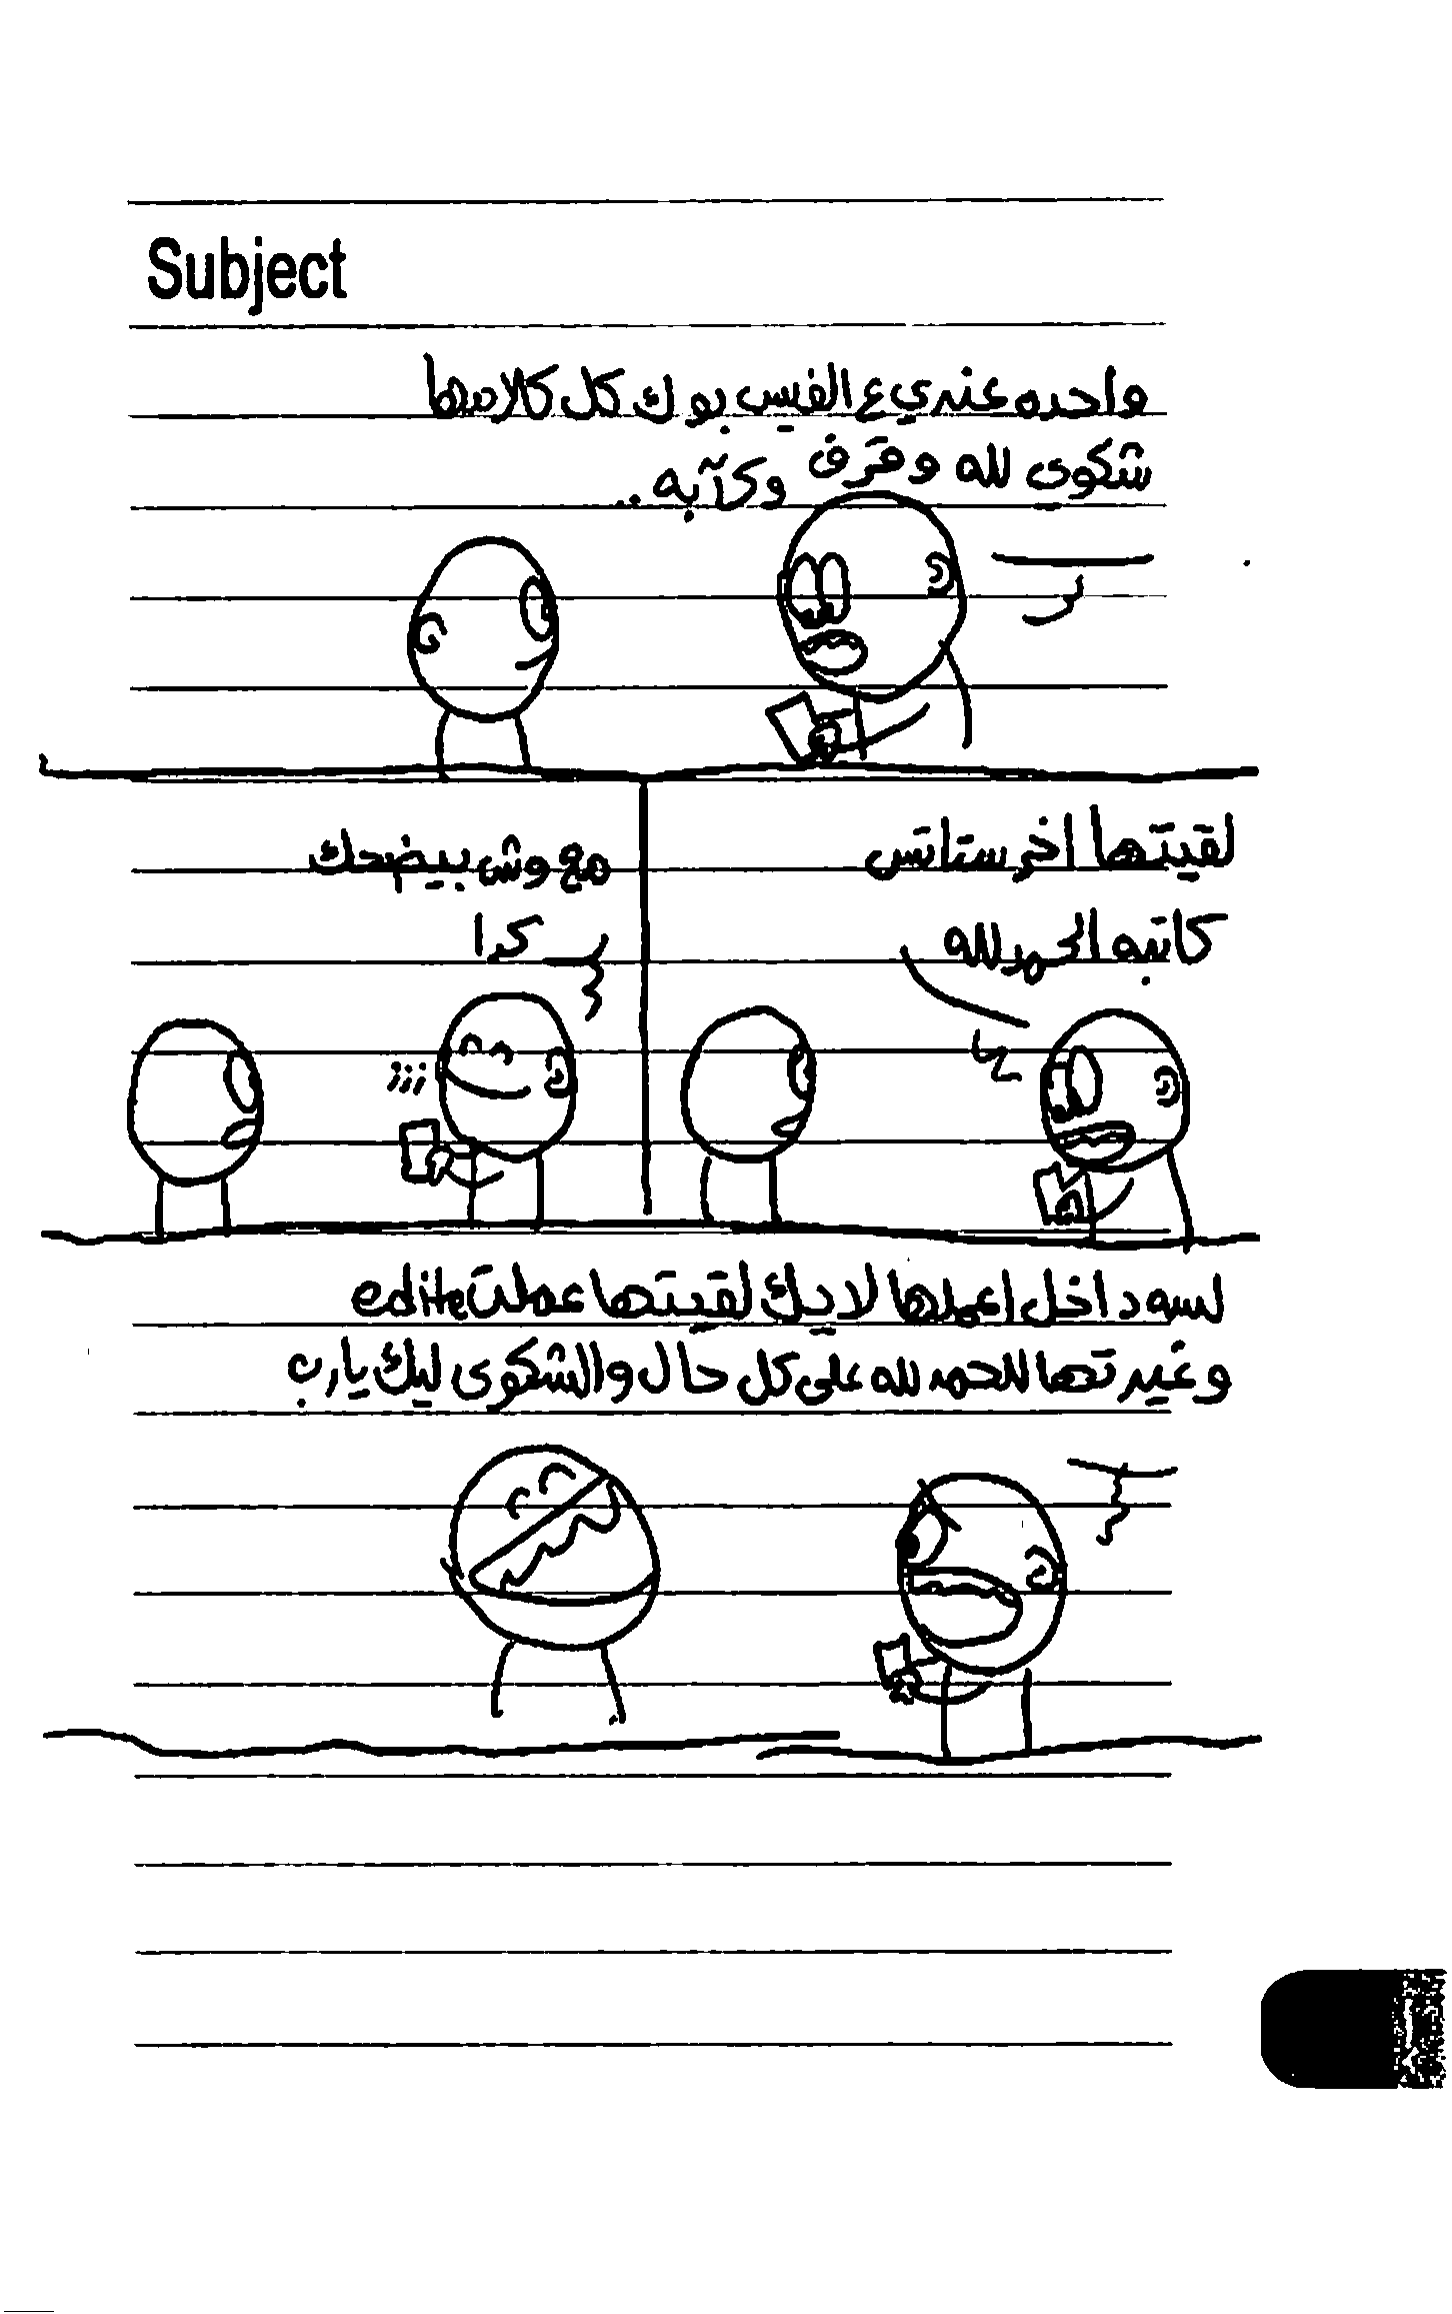 Subject
واحده عندي ع الفيس بوك كل كلامها
شكوي لله وقرف وكآبه..
لقيتها اخر ستاتس
كاتبه الحمدلله
مع وش بيضحك
كدا
لسه داخل اعملها لايك لقيتها عملت edite
وغيرتها للحمد لله على كل حال والشكوى ليك يارب